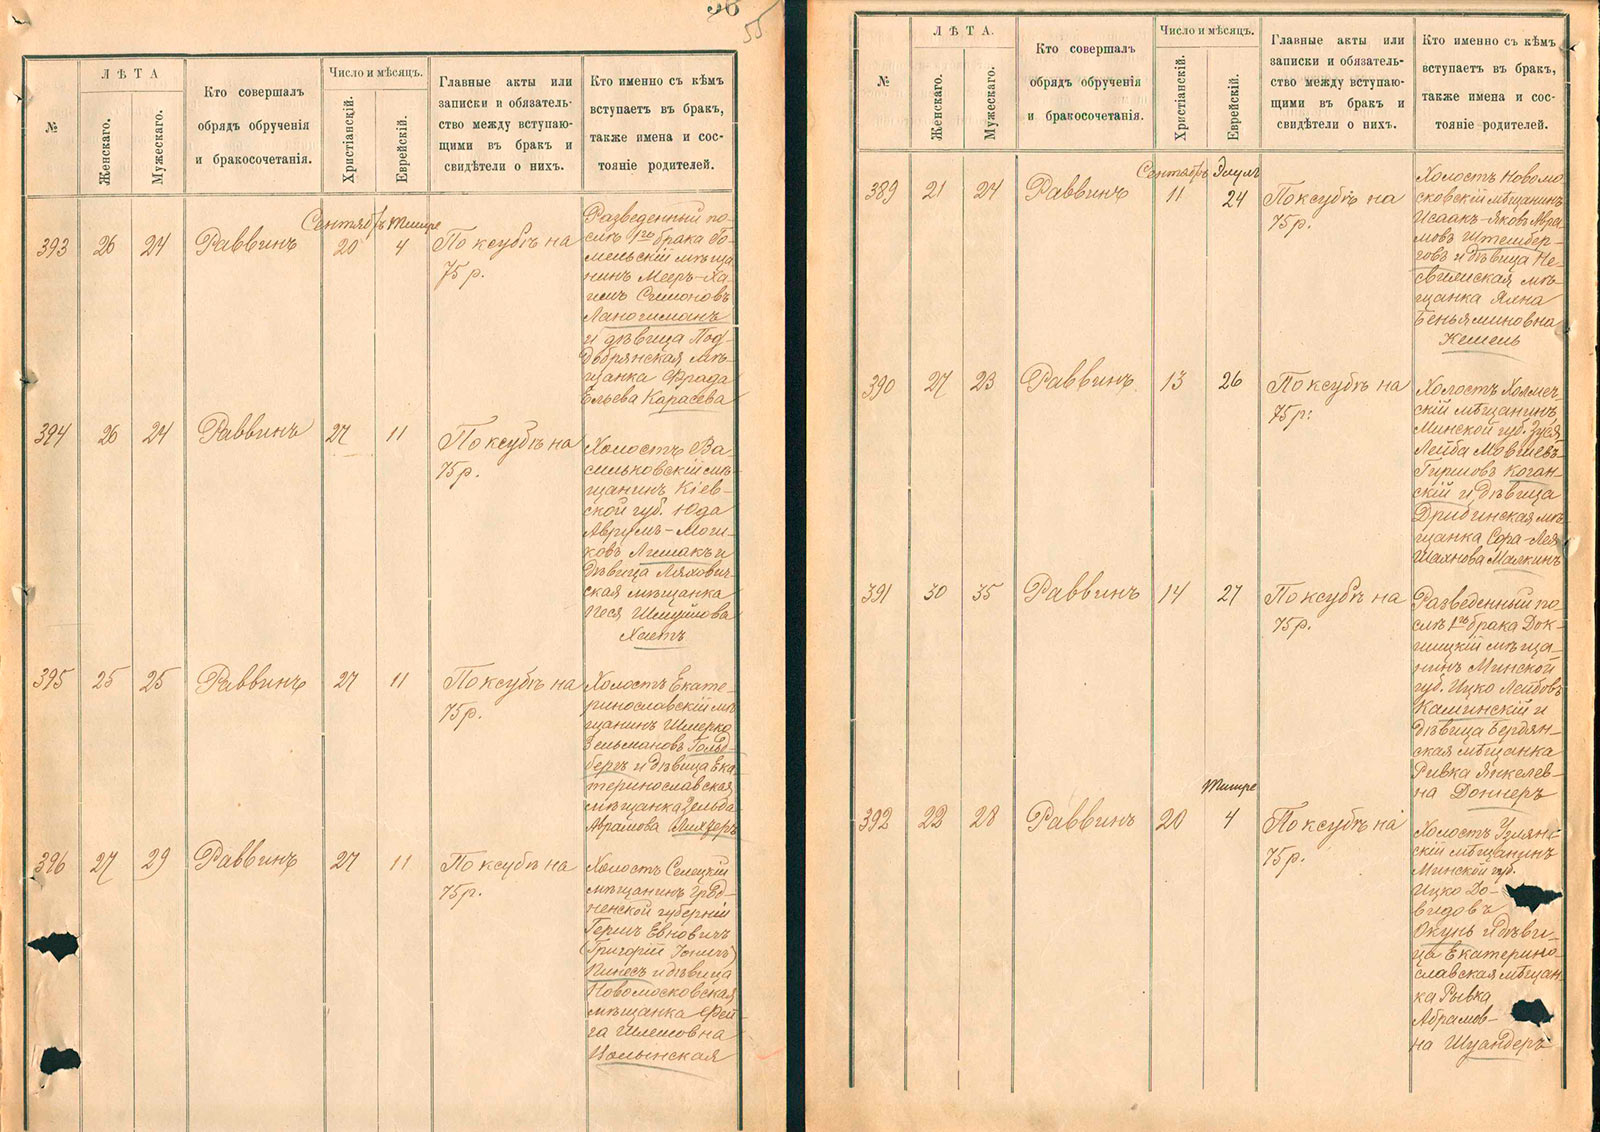 56
55
№
ЛѢТА
Женскаго.
Мужескаго.
Кто совершалъ
обрядъ обрученія
и бракосочетанія.
Число и мѣсяцъ.
Христіанскій.
Еврейскій.
Главные акты или
записки и обязатель-
ство между вступаю-
щими въ бракъ и
свидѣтели о нихъ.
Кто именно съ кѣмъ
вступаетъ въ бракъ,
также имена и сос-
тояніе родителей.
Сентябрь Тишре
393 26 24 Раввинъ 20 4 По ксубѣ на
75 р.
Разведенный по-
слѣ 1го брака Го-
мельскій мѣща
нинъ Мееръ-Ха-
имъ Симоновъ
и дѣвица Под-
добрянская мѣ-
щанка Фрада
Ельева Карасева
394 26 24 Раввинъ 27 11 По ксубѣ на
75 р.
Холостъ Ва
сильковскій мѣ-
щанинъ Кіев-
ской губ. Юда
Аврумъ-Мош-
ковъ Лишакъ и
дѣвица Ляхович-
ская мѣщанка
Песя Шмуйлова
395 25 25 Раввинъ 27 11 По ксубѣ на
75 р.
Холостъ Екате-
ринославскій мѣ
щанинъ Шмерко
Зельмановъ Гольд-
бергъ и дѣвица Ека-
теринославская
мѣщанка Зельда
Абрамова
396 27 29 Раввинъ 27 11 По ксубѣ на
75 р.
Холостъ Селецкій
мѣщанинъ Грод-
ненской губерніи
Гершъ Евновичъ
(Григорій
Пинесъ и дѣвица
Новомосковская
мѣщанка Фей-
га Шлемовна
Волынская
№
ЛѢТА.
Женскаго.
Мужескаго.
Кто совершалъ
обрядъ обрученія
и бракосочетанія.
Число и мѣсяцъ.
Христіанскій.
Еврейскій.
Главные акты или
записки и обязатель-
ство между вступаю-
щими въ бракъ и
свидѣтели о нихъ.
Кто именно съ кѣмъ
вступаетъ въ бракъ,
также имена и сос-
тояніе родителей.
Сентябрь Элулъ
389 21 24 Раввинъ 11 24 По ксубѣ на
75 р.
Холостъ Новомо
сковскій мѣщанинъ
Исаакъ-Яковъ Авра
мовъ Штембер-
говъ и дѣвица Не-
мѣ-
щанка
Беньяминовна
Кемель
390 27 23 Раввинъ 13 26 По ксубѣ на
75 р.
Холостъ Холмеч-
скій мѣщанинъ
Минской губ. Зуся
Лейба Мовшевъ-
Гиршовъ Коган-
скій и дѣвица
Дрибинская мѣ-
щанка Сора-Лея
Шахнова Малкинъ
391 30 35 Раввинъ 14 27 По ксубѣ на
75 р.
Разведенный по
слѣ 1го брака Док-
шицкій мѣща-
нинъ Минской
губ. Ицко Лейбовъ
Каминскій и
дѣвица Бердян-
ская мѣщанка
Ривка Янкелев-
на Доннеръ
Тишре
392 22 28 Раввинъ 20 4 По ксубѣ на
75 р.
Холостъ Узлян-
скій мѣщанинъ
Минской губ.
Ицко До-
видовъ
Окунь и дѣви-
ца Екатерино-
славская мѣщан
ка Рывка
Абрамов-
на Шландеръ